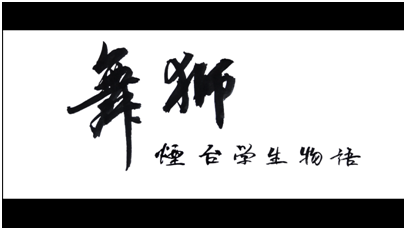 舞狮
煙台学生物语